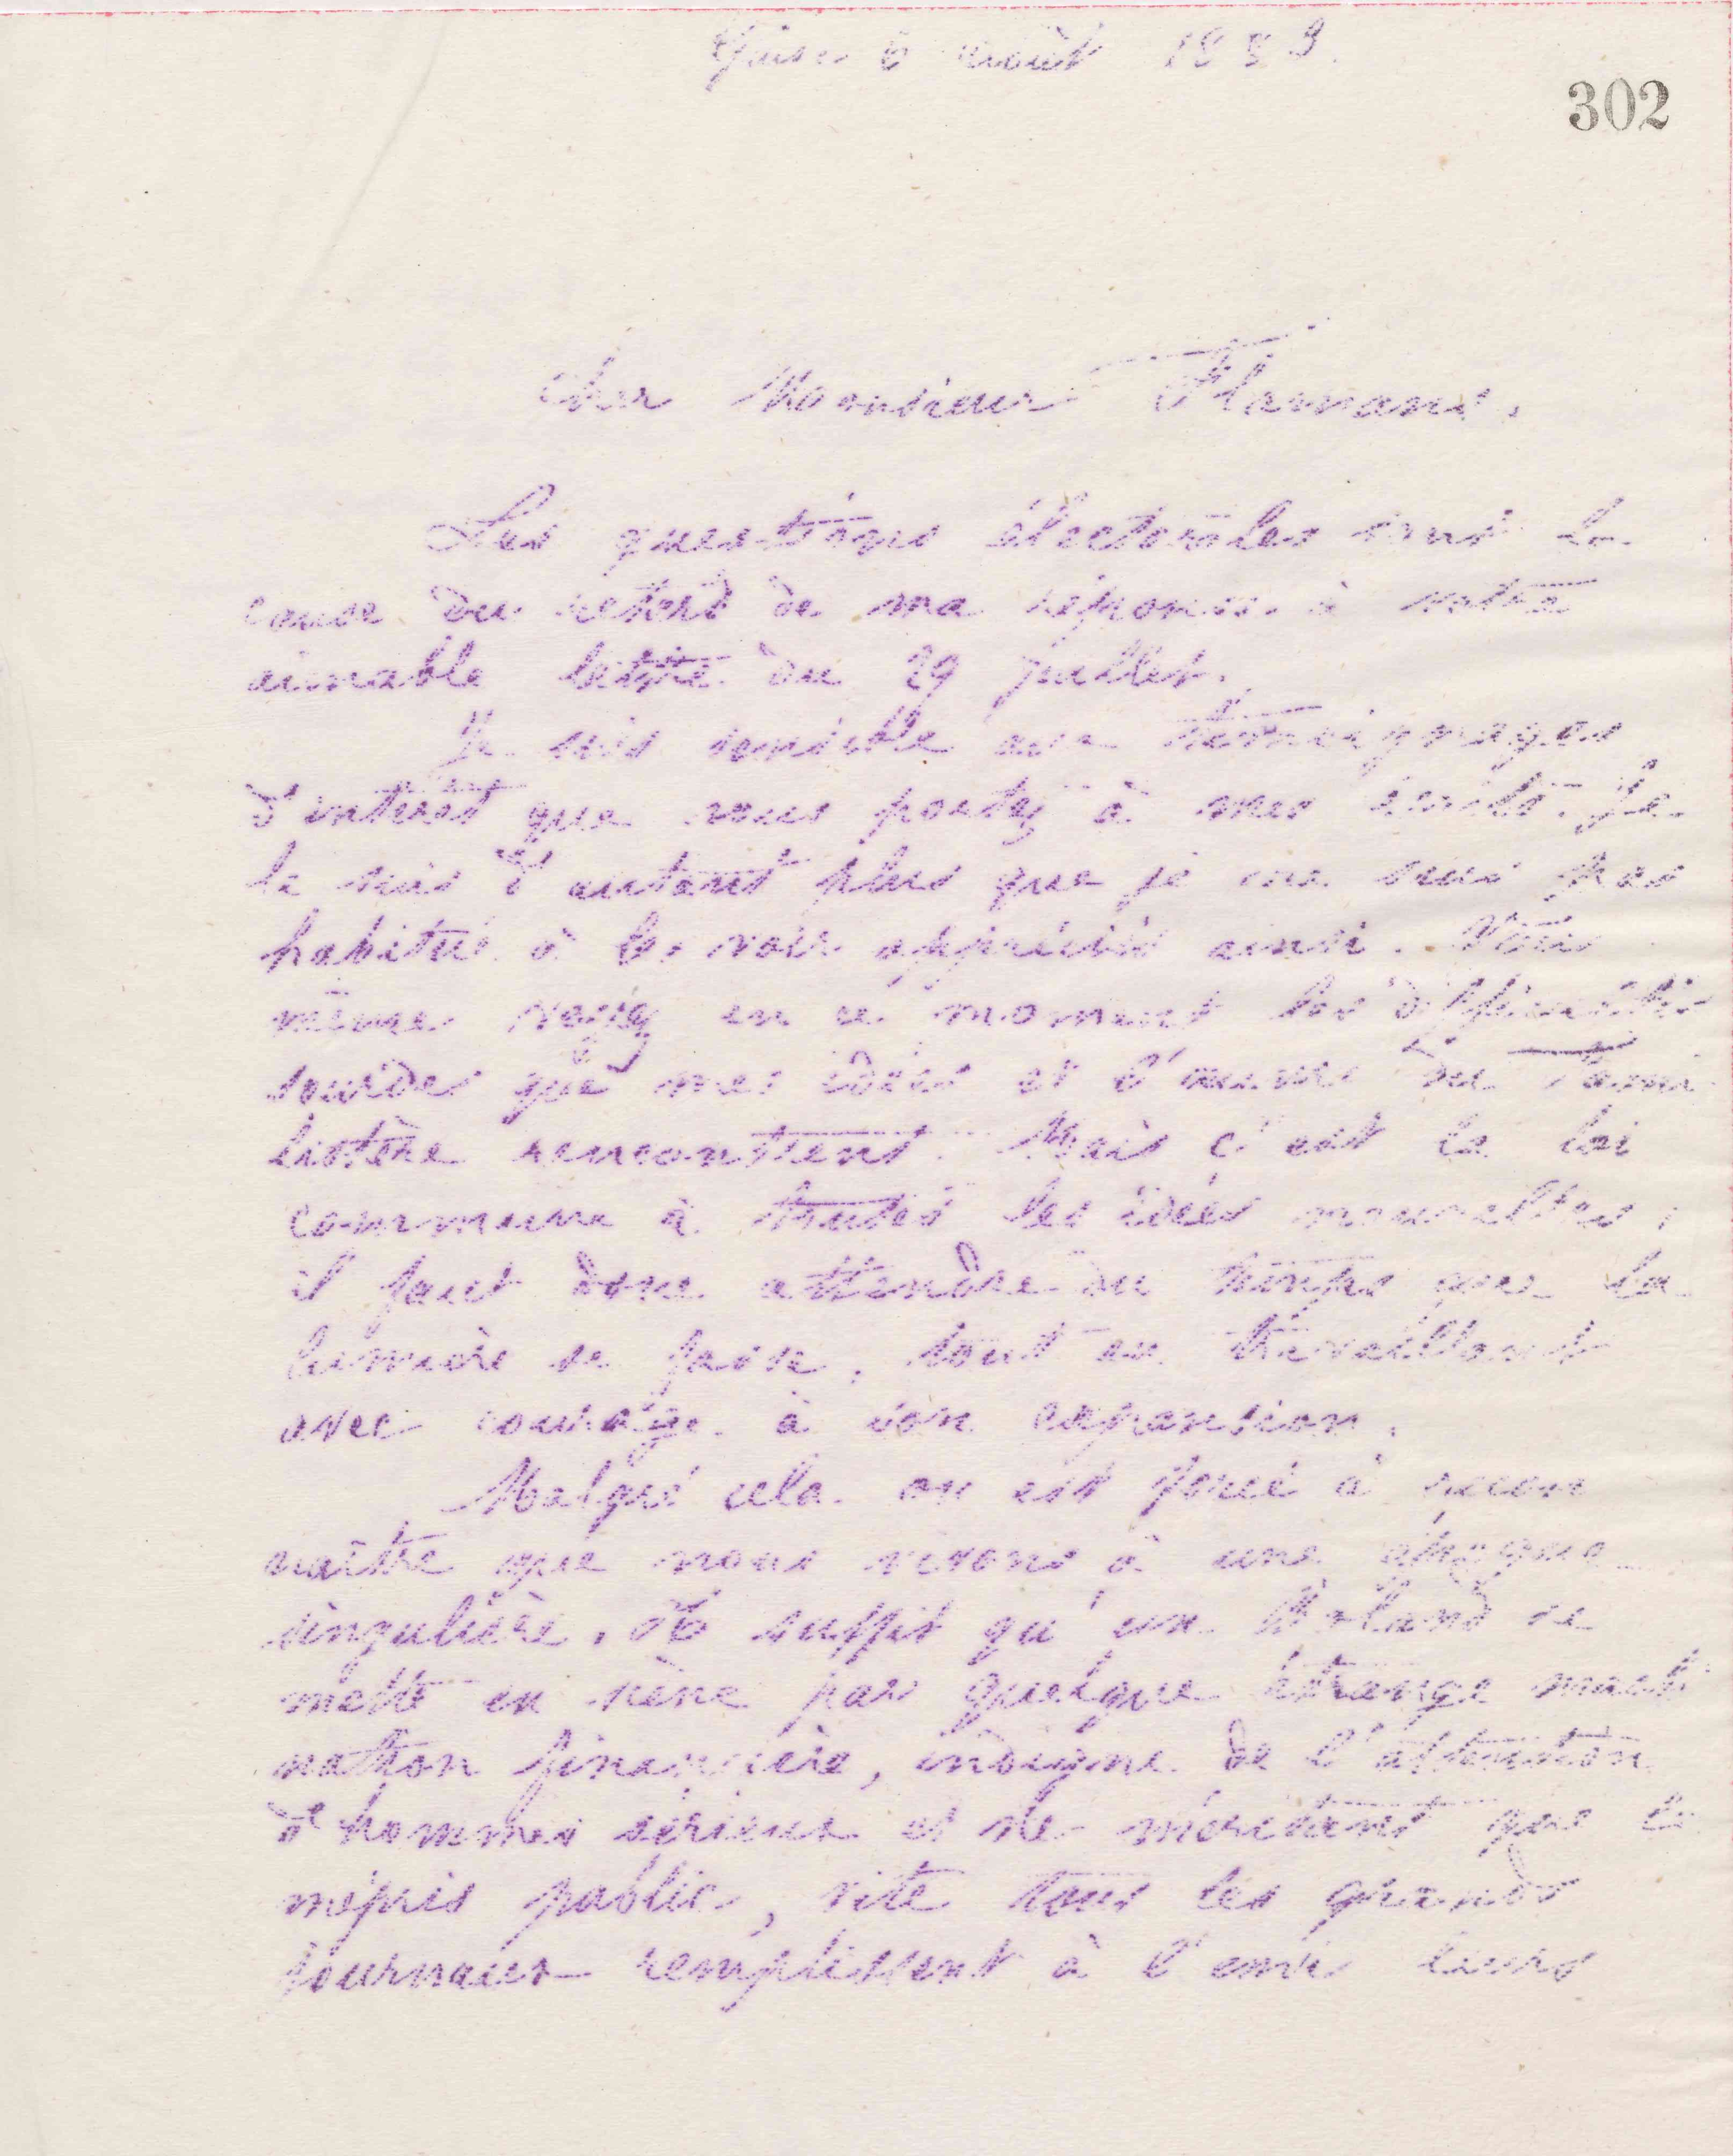 Guise 6 août 1883.
302
Cher Monsieur Flamant,
Les questions électorales sont la
cause du retard de ma réponse à votre
aimable lettre du 29 juillet.
Je suis sensible aux témoignages
d'intérêt que vous portez à mes écrits. Je
le suis d'autant plus que je ne suis pas
habitué à les voir appréciés ainsi. Vous
même voyez en ce moment les difficultés
sourdes que mes idées et l'œuvre du Fami
listère rencontrent. Mais c'est la loi
commune à toutes les idées nouvelles ;
il faut donc attendre du temps que la
lumière se fasse, tout en travaillant
avec courage à son expansion.
Malgré cela on est forcé à recon
naître que nous vivons à une époque
singulière. Il suffit qu'un se
mette en scène par quelque étrange machi
nation financière, indigne de l'attention
d'hommes sérieux et ne méritant que le
mépris public, vite tous les grands
journaux remplissent à l'envi leurs